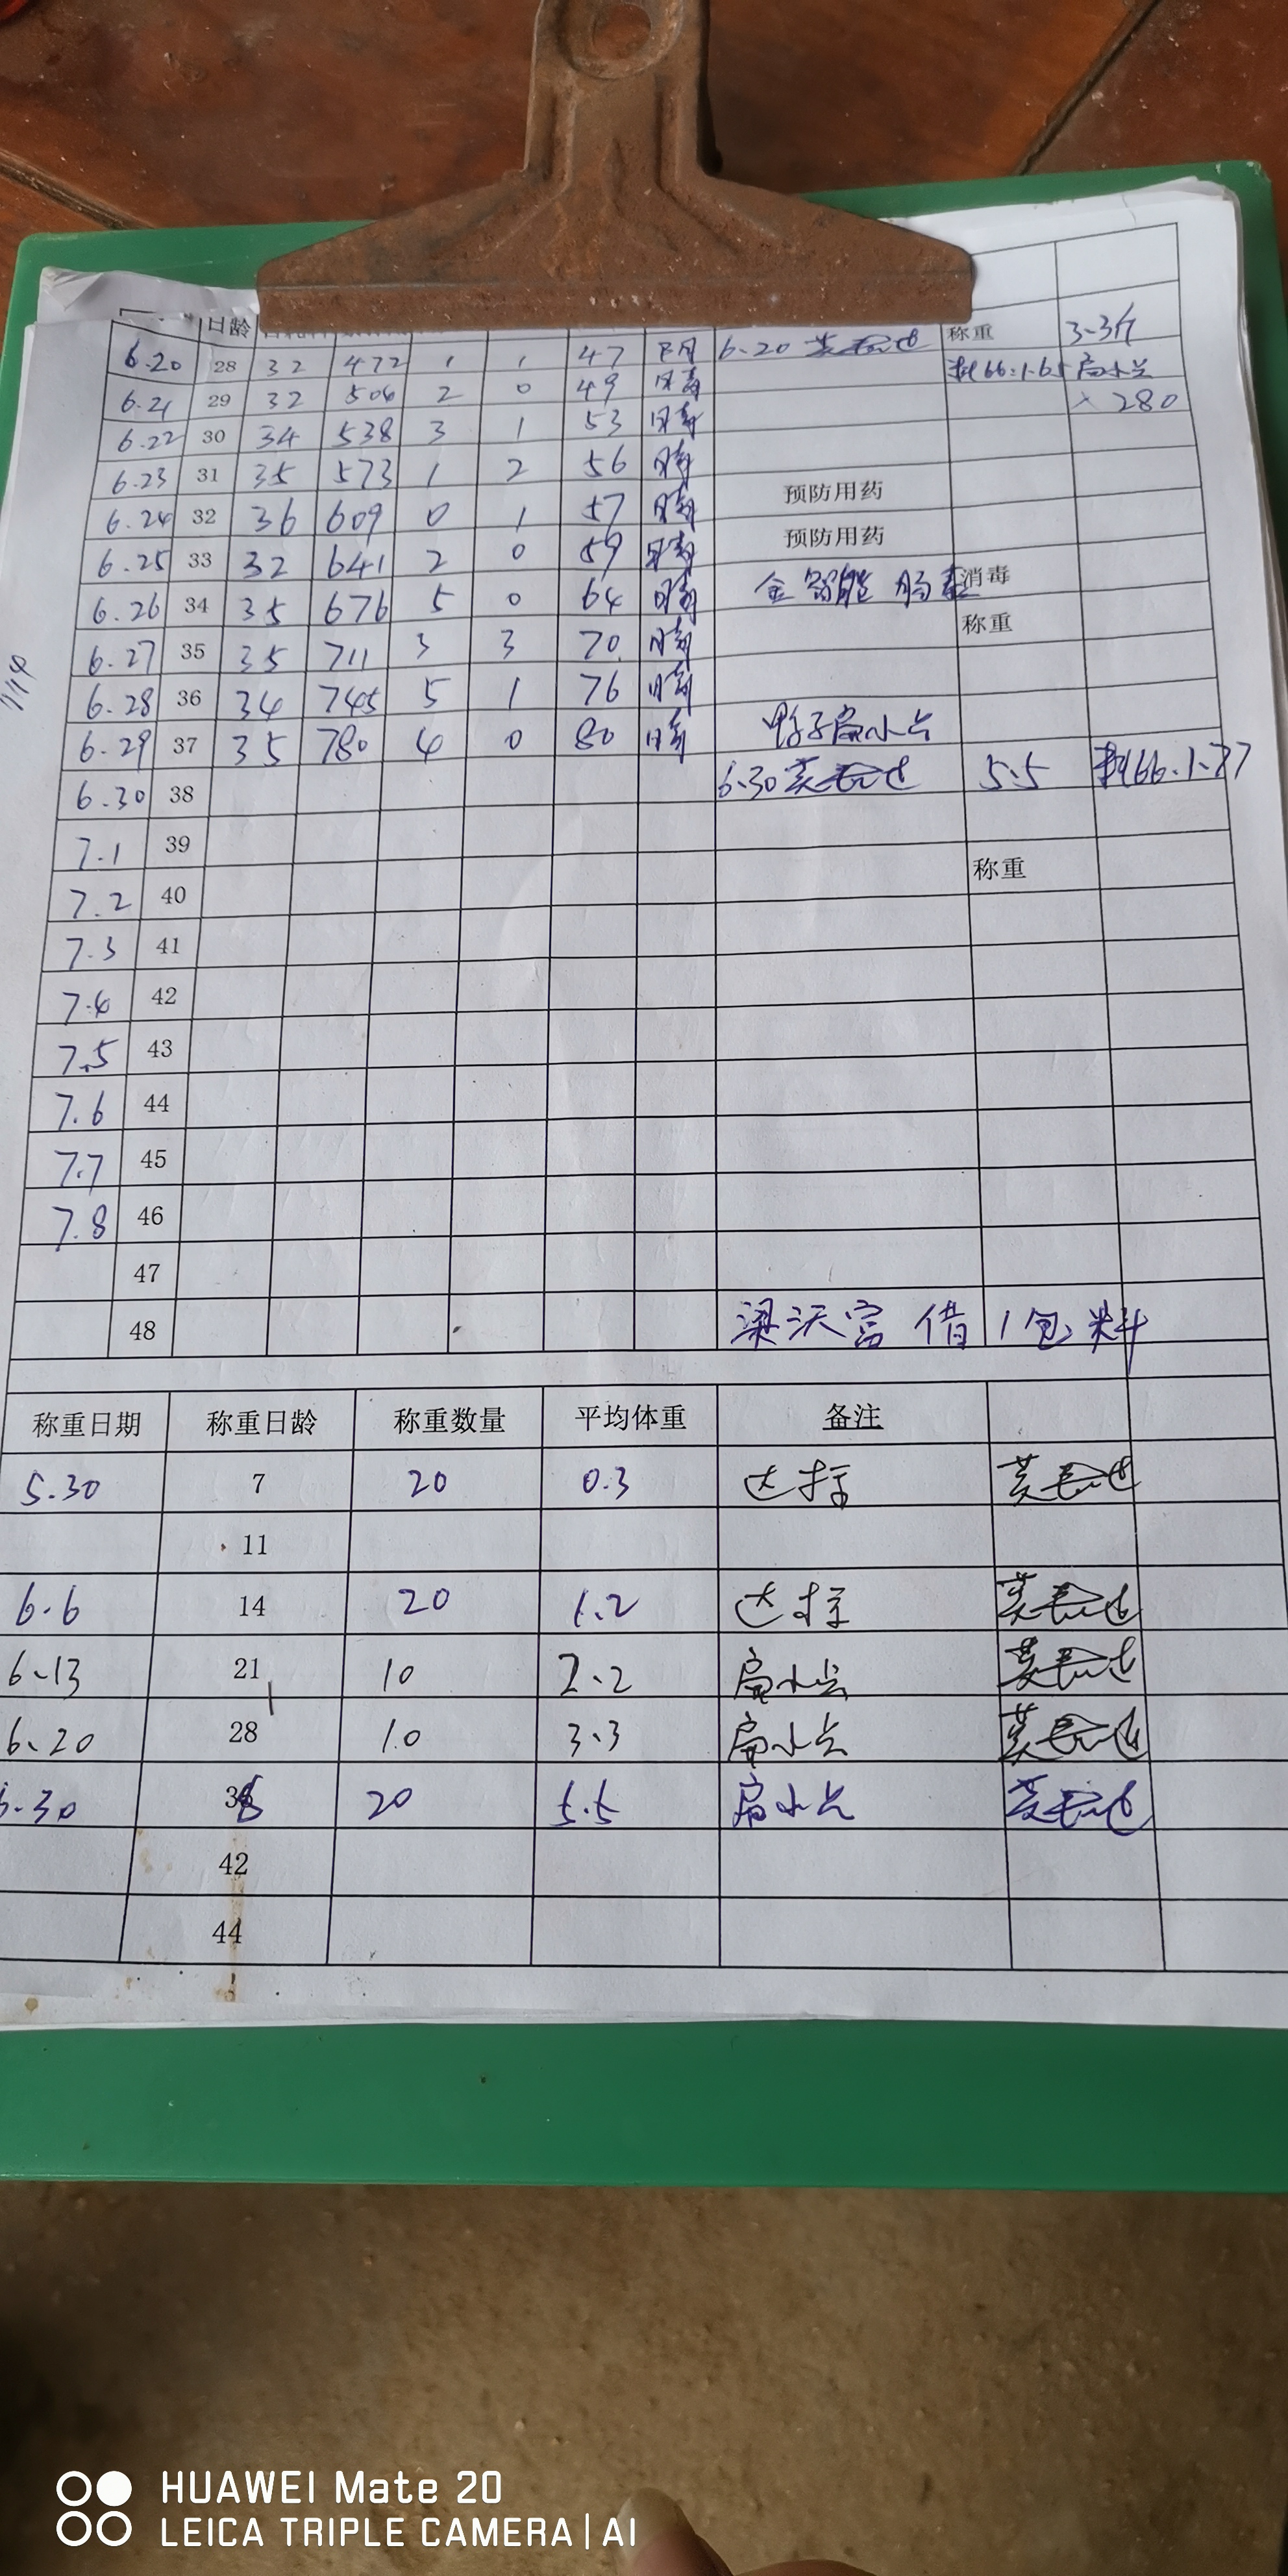 日龄
6.20 28 32 472 1 1 47 阴 6.20 称重 3.3斤
6.21 29 32 506 2 0 49 晴 料比1.65 扁小点
6.22 30 34 538 3 1 53 晴 280
6.23 31 35 573 1 2 56 晴
6.24 32 36 609 0 1 57 晴 预防用药
6.25 33 32 641 2 0 59 晴 预防用药
6.26 34 35 676 5 0 64 晴 肠毒 消毒
6.27 35 35 711 3 3 70 晴 称重
6.28 36 34 745 5 1 76 晴
6.29 37 35 780 4 0 80 晴 鸭子扁小点
6.30 38 6.30 5.5 料比1.77
7.1 39
7.2 40 称重
7.3 41
7.4 42
7.5 43
7.6 44
7.7 45
7.8 46
47
48 梁沃富 借 1包料
称重日期 称重日龄 称重数量 平均体重 备注
5.30 7 20 0.3 达标
11
6.6 14 20 1.2 达标
6.13 21 10 2.2 扁小点
6.20 28 10 3.3 扁小点
6.30 38 20 5.5 扁小点
42
44
HUAWEI Mate 20
LEICA TRIPLE CAMERA | AI